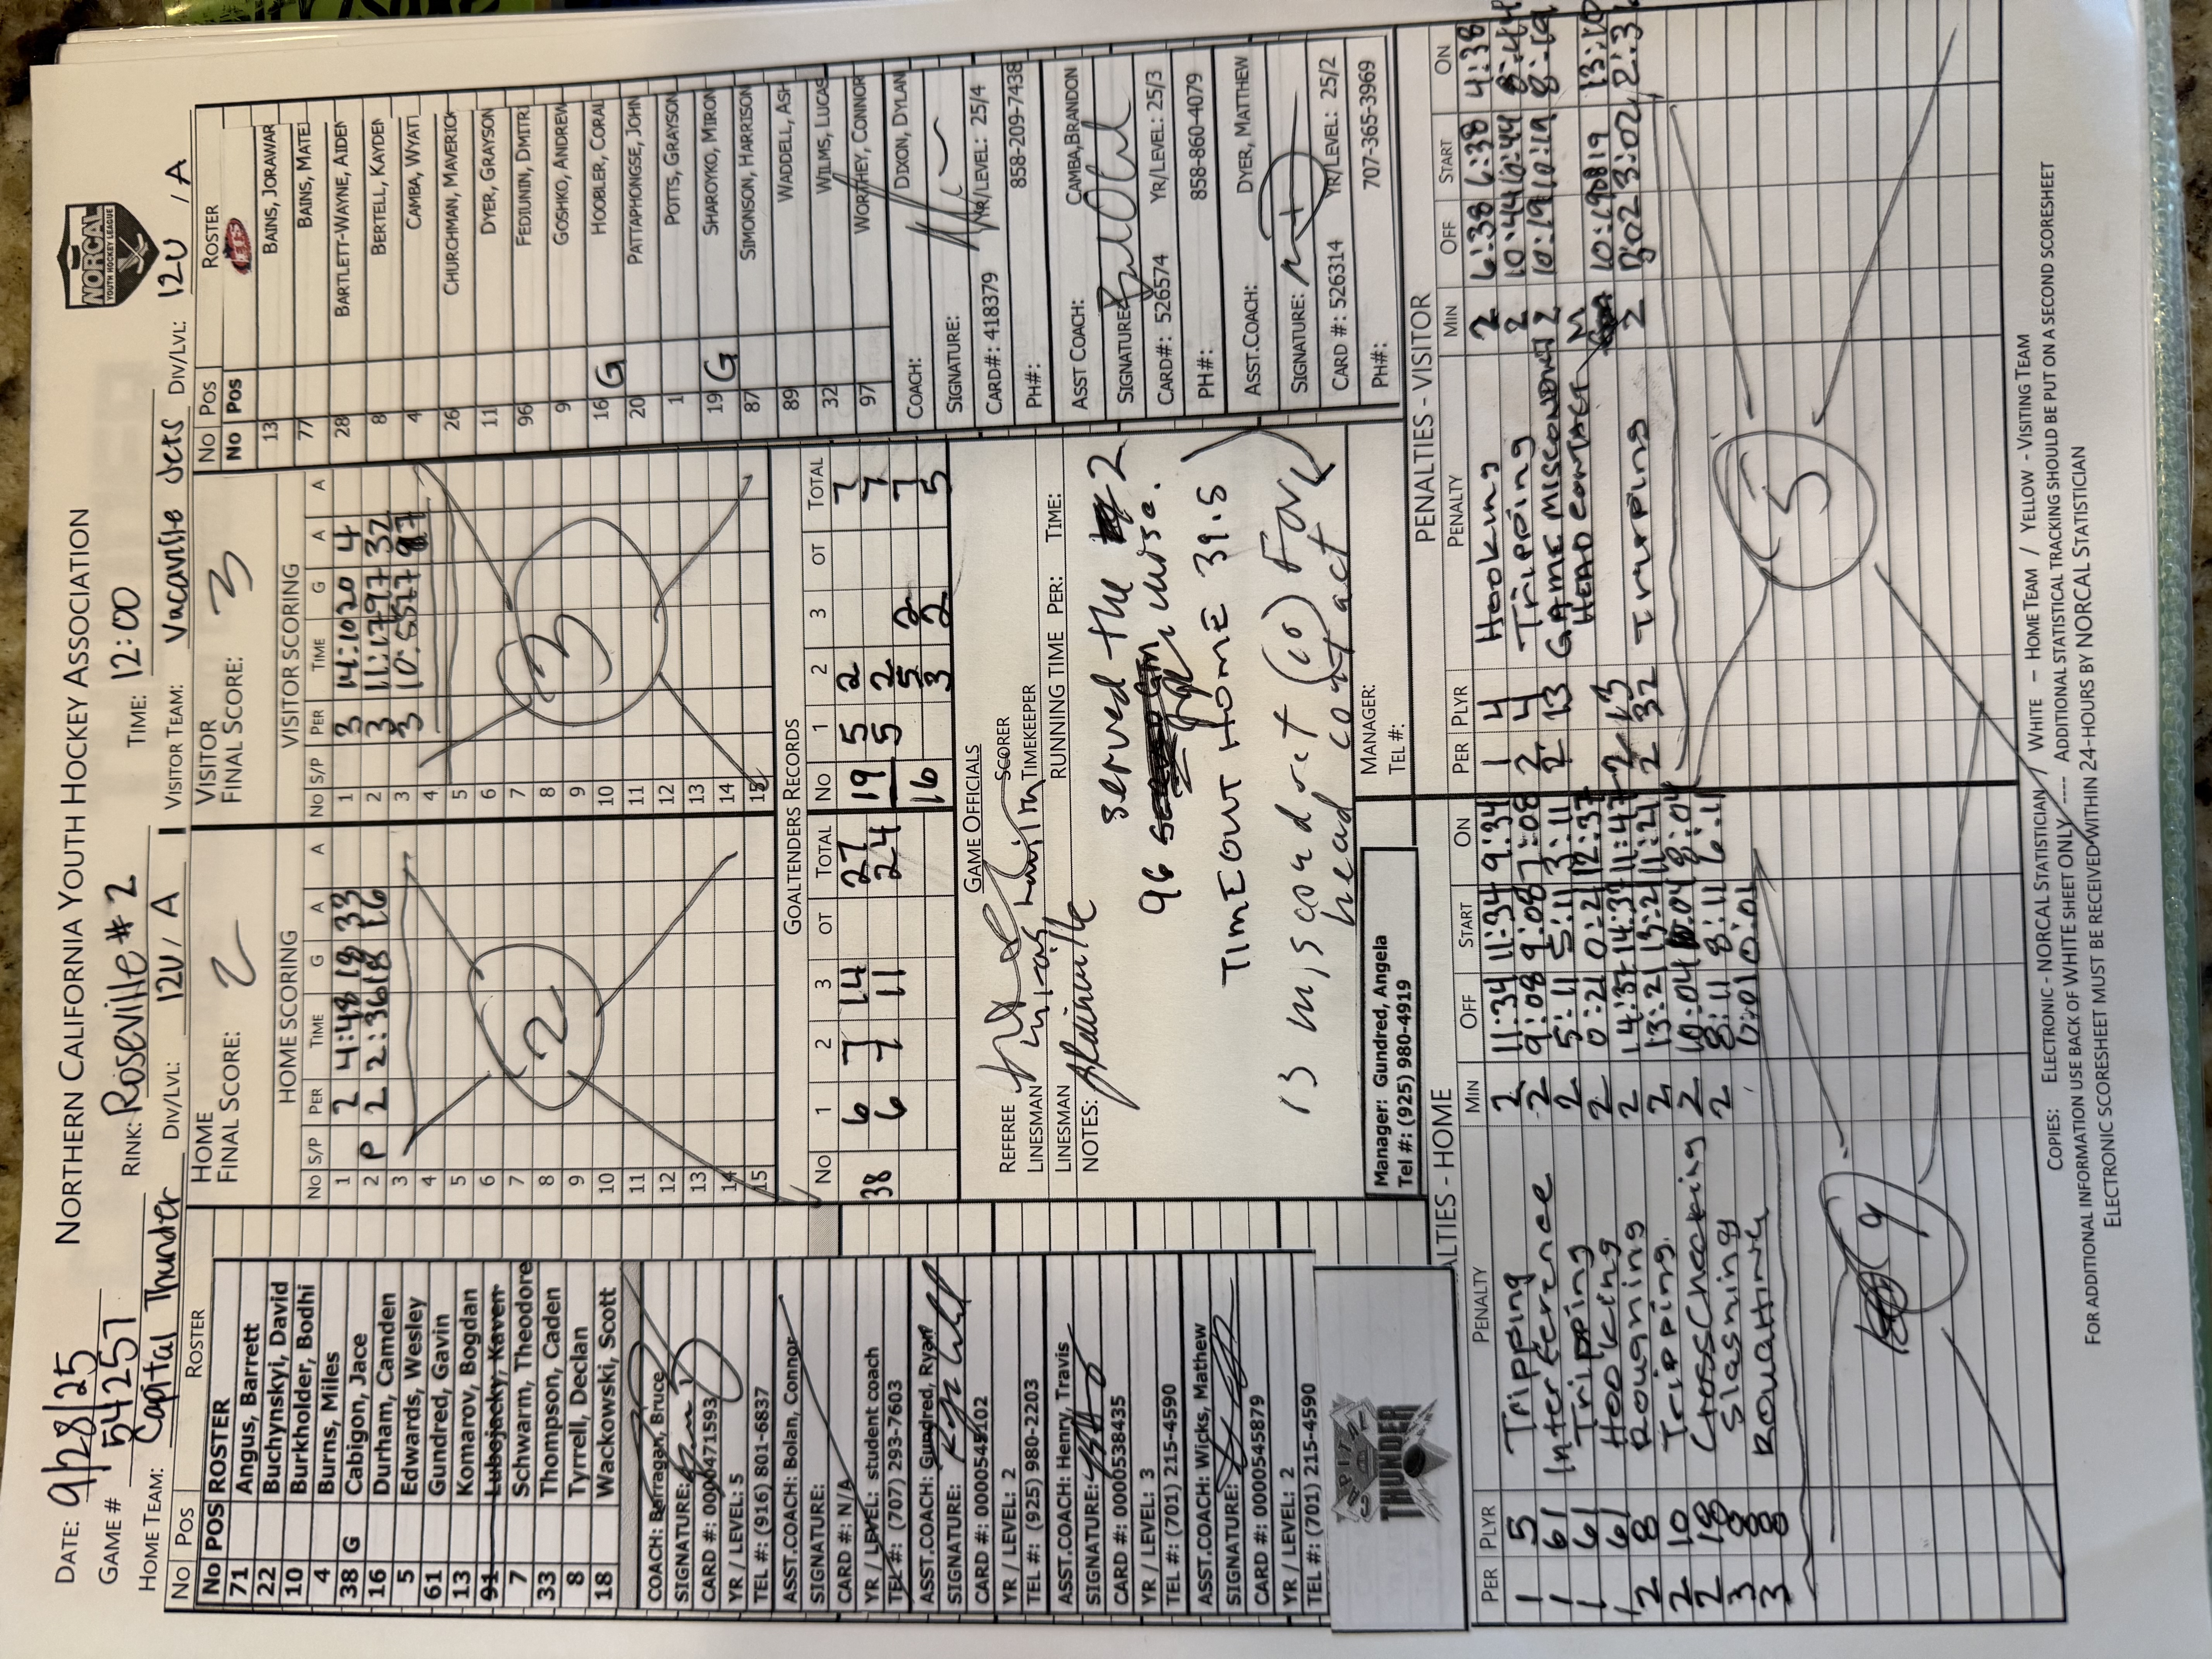 NORTHERN CALIFORNIA YOUTH HOCKEY ASSOCIATION
NORCAL
YOUTH HOCKEY LEAGUE
DATE: 9/28/25
GAME # 54257
RINK: Roseville #2
TIME: 12:00
HOME TEAM: Capital Thunder DIV/LVL: 12U / A
VISITOR TEAM: Vacaville Jets DIV/LVL: 12U / A
NO POS ROSTER
No POS ROSTER
71 Angus, Barrett
22 Buchynskyi, David
10 Burkholder, Bodhi
4 Burns, Miles
38 G Cabigon, Jace
16 Durham, Camden
5 Edwards, Wesley
61 Gundred, Gavin
13 Komarov, Bogdan
91 Lubojacky, Kaven
7 Schwarm, Theodore
33 Thompson, Caden
8 Tyrrell, Declan
18 Wackowski, Scott
COACH: Barragan, Bruce
SIGNATURE:
CARD #: 0000471593
YR / LEVEL: 5
TEL #: (916) 801-6837
ASST.COACH: Bolan, Connor
SIGNATURE:
CARD #: N/A
YR / LEVEL: student coach
TEL #: (707) 293-7603
ASST.COACH: Gundred, Ryan
SIGNATURE:
CARD #: 0000545102
YR / LEVEL: 2
TEL #: (925) 980-2203
ASST.COACH: Henry, Travis
SIGNATURE:
CARD #: 0000538435
YR / LEVEL: 3
TEL #: (701) 215-4590
ASST.COACH: Wicks, Mathew
SIGNATURE:
CARD #: 0000545879
YR / LEVEL: 2
TEL #: (701) 215-4590
CAPITAL
THUNDER
HOME
FINAL SCORE: 2
HOME SCORING
NO S/P PER TIME G A A
1 2 4:48 18 33
2 P 2 2:36 18 16
3
4
5
6
7
8
9
10
11
12
13
14
15
2
VISITOR
FINAL SCORE: 3
VISITOR SCORING
NO S/P PER TIME G A A
1 3 14:10 20 4
2 3 11:17 97 32
3 3 10:55 77 97
4
5
6
7
8
9
10
11
12
13
14
15
3
GOALTENDERS RECORDS
NO 1 2 3 OT TOTAL NO 1 2 3 OT TOTAL
38 6 7 14 27 19 5 2 7
6 7 11 24 5 2 7
16 5 2 7
3 2 5
GAME OFFICIALS
REFEREE SCORER
LINESMAN TIMEKEEPER
LINESMAN RUNNING TIME PER: TIME:
NOTES:
96 served the 2
TIMEOUT HOME 39.5
13 misconduct (10) For
head contact
Manager: Gundred, Angela
Tel #: (925) 980-4919
MANAGER:
TEL #:
NO POS ROSTER
No Pos JETS
13 BAINS, JORAWAR
77 BAINS, MATE
28 BARTLETT-WAYNE, AIDEN
8 BERTELL, KAYDEN
4 CAMBA, WYATT
26 CHURCHMAN, MAVERICK
11 DYER, GRAYSON
96 FEDIUNIN, DMITRI
9 GOSHKO, ANDREW
16 G HOOBLER, CORAL
20 PATTAPHONGSE, JOHN
1 POTTS, GRAYSON
19 G SHAROYKO, MIRON
87 SIMONSON, HARRISON
89 WADDELL, ASH
32 WILMS, LUCAS
97 WORTHEY, CONNOR
COACH: DIXON, DYLAN
SIGNATURE:
CARD#: 418379 YR/LEVEL: 25/4
PH#: 858-209-7438
ASST COACH: CAMBA,BRANDON
SIGNATURE:
CARD#: 526574 YR/LEVEL: 25/3
PH#: 858-860-4079
ASST.COACH: DYER, MATTHEW
SIGNATURE:
CARD #: 526314 YR/LEVEL: 25/2
PH#: 707-365-3969
PENALTIES - HOME
PER PLYR PENALTY MIN OFF START ON
1 5 Tripping 2 11:34 11:34 9:34
1 61 Interference 2 9:08 9:08 7:08
1 61 Tripping 2 5:11 5:11 3:11
1 61 Hooking 2 0:21 0:21 12:37
2 8 Roughing 2 14:37 14:37 11:47
2 10 Tripping 2 13:21 13:21 11:21
2 18 Cross Checking 2 10:04 10:04 8:04
3 8 Slashing 2 8:11 8:11 6:11
3 8 Roughing 0:01 0:01
9
PENALTIES - VISITOR
PER PLYR PENALTY MIN OFF START ON
1 4 Hooking 2 6:38 6:38 4:38
2 4 Tripping 2 10:44 10:44 8:44
2 13 GAME MISCONDUCT 2 10:19 10:19 8:19
2 13 HEAD CONTACT M 10:19 13:10
2 32 Tripping 2 3:02 3:02
5
COPIES: ELECTRONIC - NORCAL STATISTICIAN / WHITE – HOME TEAM / YELLOW - VISITING TEAM
FOR ADDITIONAL INFORMATION USE BACK OF WHITE SHEET ONLY ---- ADDITIONAL STATISTICAL TRACKING SHOULD BE PUT ON A SECOND SCORESHEET
ELECTRONIC SCORESHEET MUST BE RECEIVED WITHIN 24-HOURS BY NORCAL STATISTICIAN